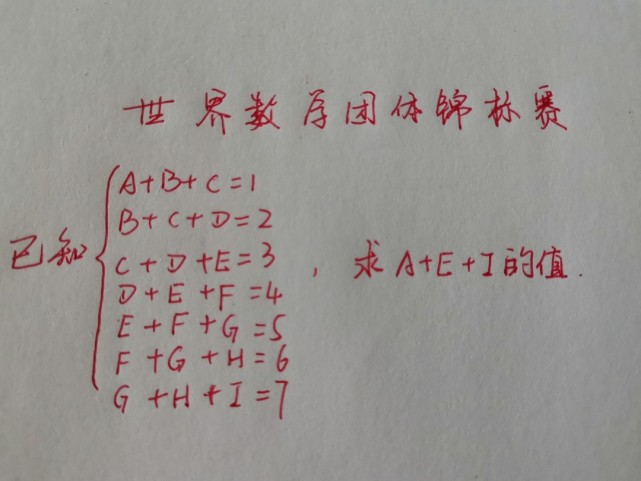 世界数学团体锦标赛
A+B+C=1
B+C+D=2
已知 C+D+E=3 , 求A+E+I的值.
D+E+F=4
E+F+G=5
F+G+H=6
G+H+I=7